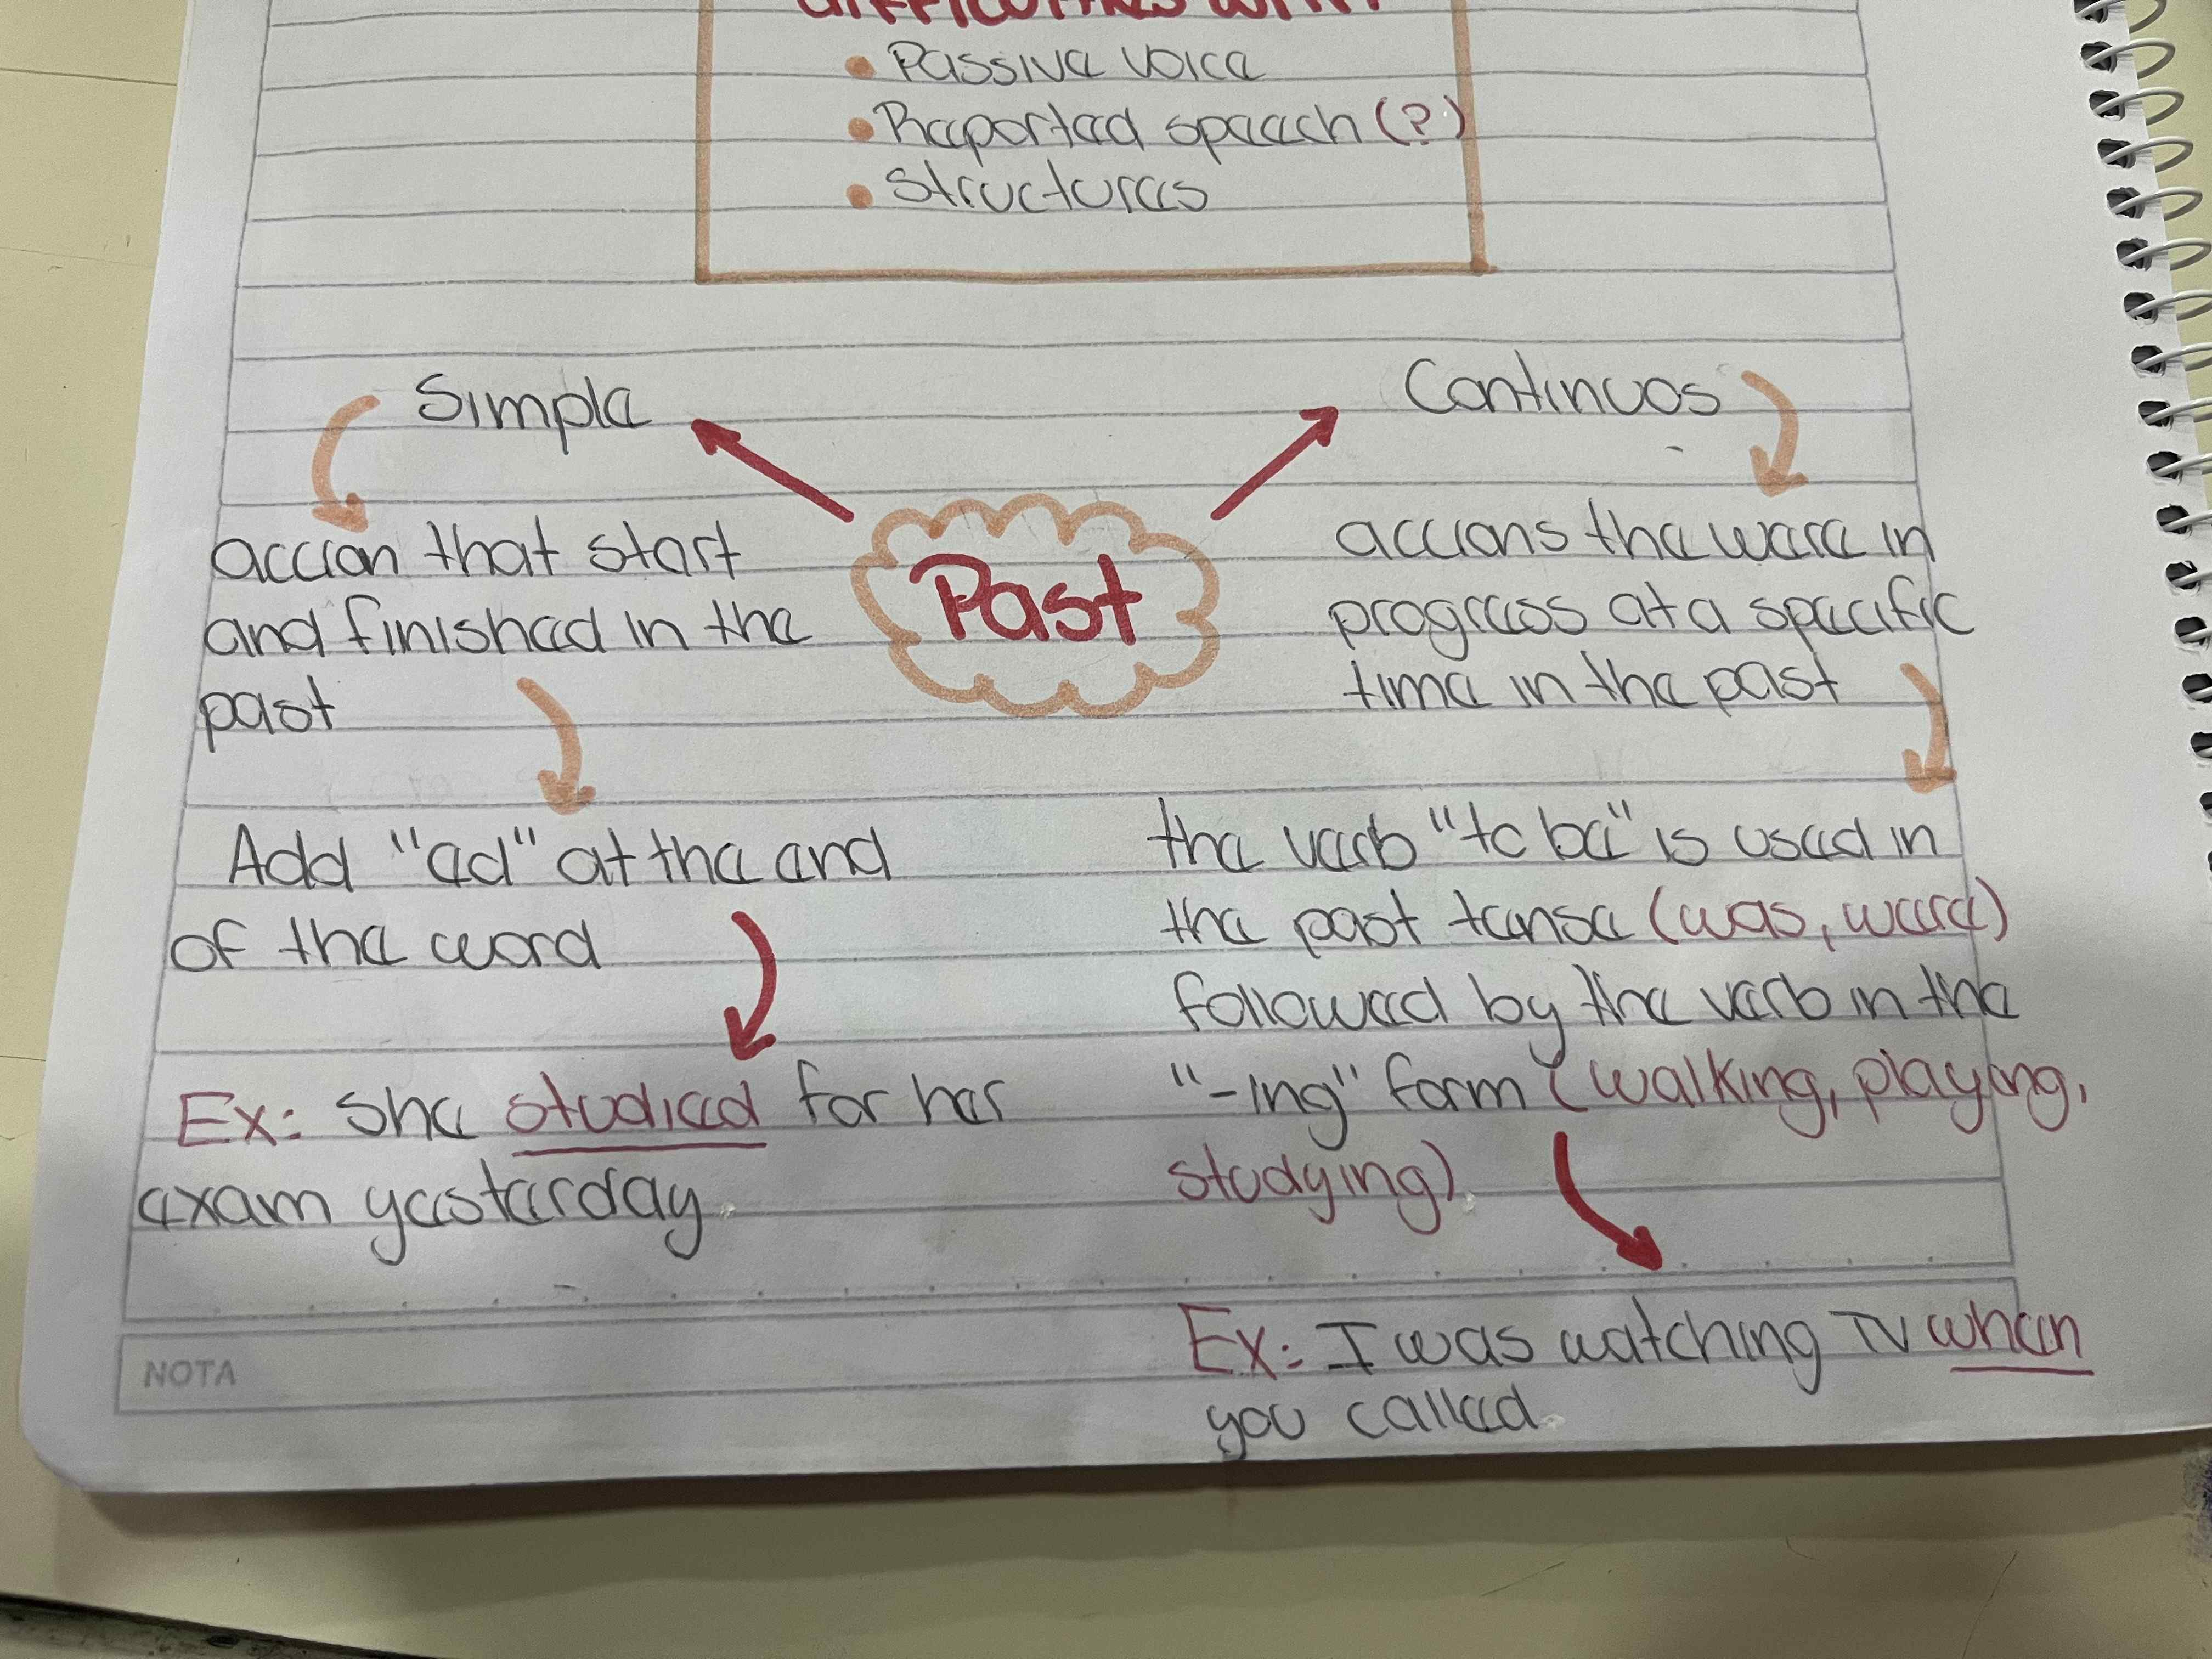 DIFFICULTIES WITH
• Passive voice
• Reported speech (?)
• Structures
Simple
Continuos
Past
accion that start
and finished in the
past
Add "ed" at the end
of the word
Ex: She studied for her
exam yesterday.
accions the were in
progress at a specific
time in the past
the verb "to be" is used in
the past tense (was, were)
followed by the verb in the
"-ing" form (walking, playing,
studying).
Ex: I was watching TV when
you called.
NOTA